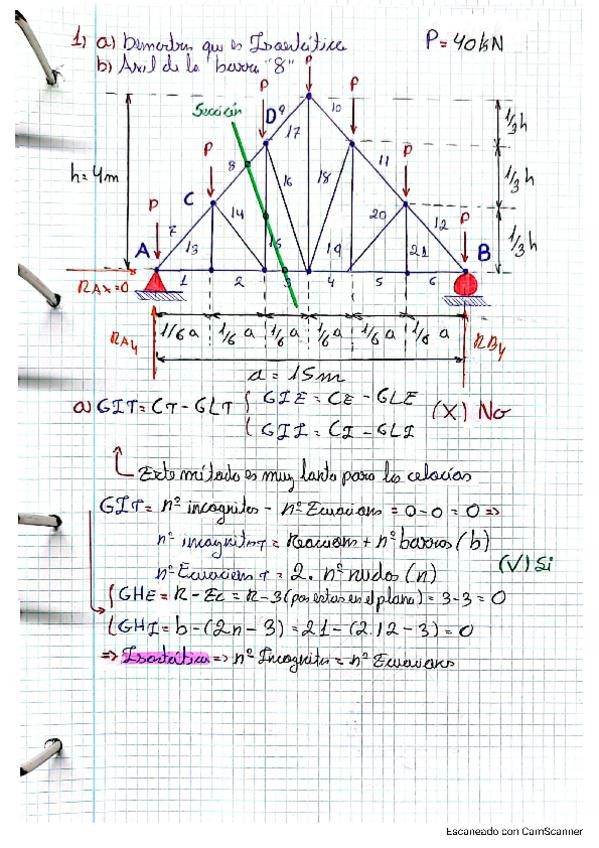 1) a) Demostrar que es Isostática P = 40kN
b) Axil de la barra "8"
P
P
Sección
D 9 10
17
P
1/3 h
8 11
h = 4m
P
16 18
P
1/3 h
C
14 20
7 12
P
P
1/3 h
A 13 15 19 21 B
RAx=0
1 2 3 4 5 6
RAy
1/6 a 1/6 a 1/6 a 1/6 a 1/6 a 1/6 a
RBy
a = 15m
a) GIT = CT - GLT { GIE = CE - GLE (X) No
GII = CI - GLI
Este método es muy lento para las celocías
GIT = nº incognitas - nº Ecuacions = 0 - 0 = 0 =>
nº incognitasT = Reaccions + nº barras (b)
(V) Si
nº EcuacionsT = 2 . nº nudos (n)
GHE = R - Ec = R - 3 (pos estas en el plano) = 3 - 3 = 0
GHI = b - (2n - 3) = 21 - (2.12 - 3) = 0
=> Isostática => nº Incognitas = nº Ecuacions
Escaneado con CamScanner